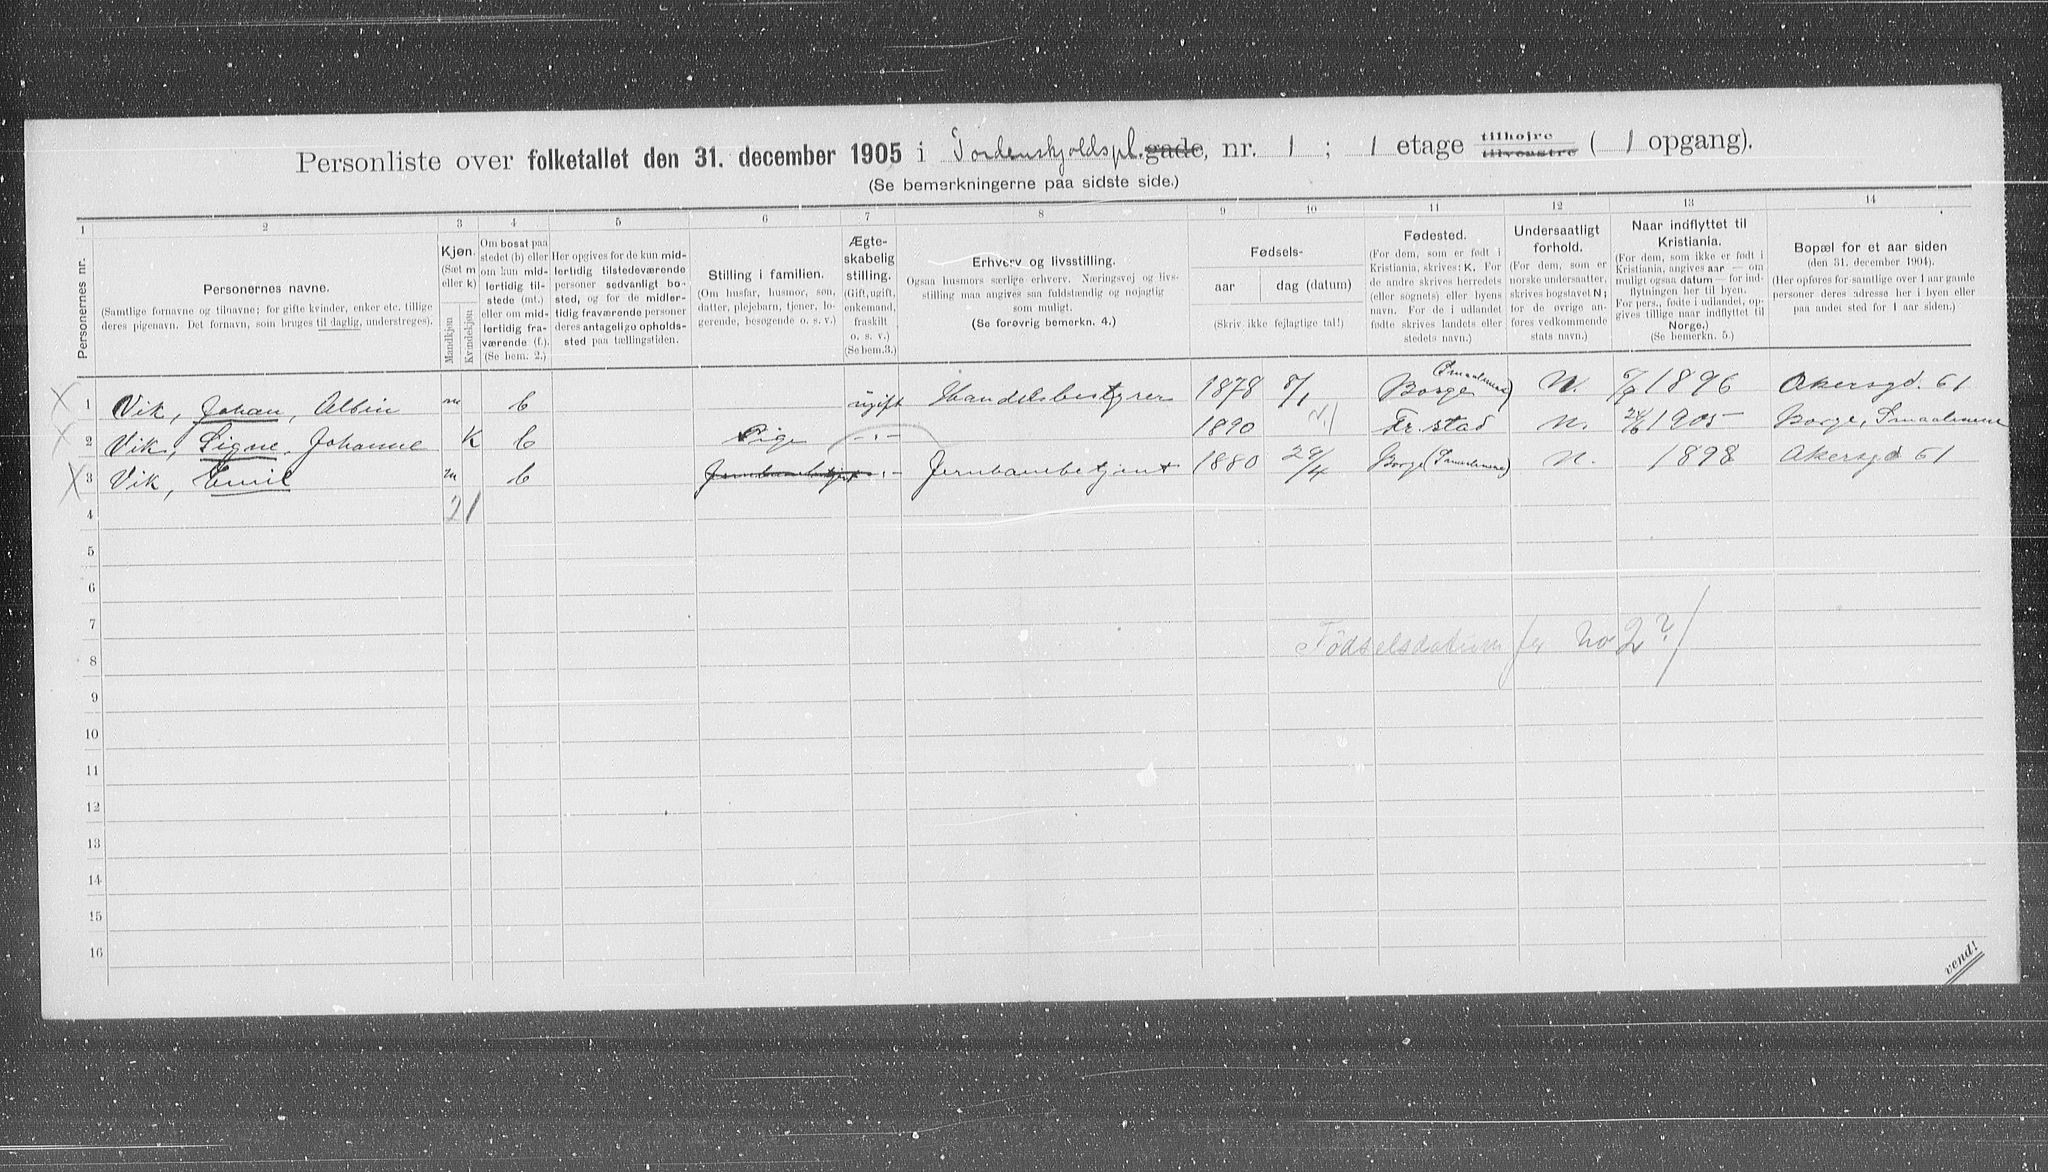 Personliste over folketallet den 31. december 1905 i Tordenskjoldspl. gade, nr. 1 ; 1 etage tilhøjre tilvenstre ( 1 opgang).
(Se bemerkningerne paa sidste side.)
1 2 3 4 5 6 7 8 9 10 11 12 13 14
Personernes nr.
Personernes navne.
(Samtlige fornavne og tilnavne; for gifte kvinder, enker etc. tillige deres pigenavn. Det fornavn, som bruges til daglig, understreges).
Kjøn.
(Sæt m eller k)
Mandkjøn
Kvindekjøn
Om bosat paa stedet (b) eller om kun midlertidig tilstede (mt.) eller om midlertidig fraværende (f.). (Se bem. 2.)
Her opgives for de kun midlertidig tilstedeværende personer sedvanligt bosted, og for de midlertidig fraværende personer deres antagelige opholdssted paa tællingstiden.
Stilling i familien.
(Om husfar, husmor, søn, datter, plejebarn, tjener, logerende, besøgende o. s. v.)
Ægteskabelig stilling.
(Gift, ugift, enkemand, fraskilt o. s. v.)
(Se bem.3.)
Erhverv og livsstilling.
Ogsaa husmors særlige erhverv. Næringsvej og livsstilling maa angives saa fuldstændig og nøjagtig som muligt.
(Se forøvrig bemerkn. 4.)
Fødsels-
aar
dag (datum)
(Skriv ikke fejlagtige tal!)
Fødested.
(For dem, som er født i Kristiania, skrives: K. For de andre skrives herredets (eller sognets) eller byens navn. For de i udlandet fødte skrives landets eller stedets navn.)
Undersaatligt forhold.
(For dem, som er norske undersaatter, skrives bogstavet N; for de øvrige anføres vedkommende stats navn.)
Naar indflyttet til Kristiania.
(For dem, som ikke er født i Kristiania, angives aar — om muligt ogsaa datum — for indflytningen her til byen. For pers., fødte i udlandet, opgives tillige naar indflyttet til Norge.)
(Se bemerkn. 5.)
Bopæl for et aar siden
(den 31. december 1904).
(Her opføres for samtlige over 1 aar gamle personer deres adresse her i byen eller paa andet sted for 1 aar siden.)
1 Vik, Johan, Albin m b ugift Handelsbestyrer 1878 8/1 Borge (Smaalenene) N. 1896 Akersgd. 61
2 Vik, Signe, Johanne K b Pige -"- 1890 Fr.stad N. 1905 Borge, Smaalenene
3 Vik, Emil m b Jernbanebetjent -"- Jernbanebetjent 1880 29/4 Borge (Smaalenene) N. 1898 Akersgd 61
4 2 1
5
6
7
Fødselsdatum for No 2?
8
9
10
11
12
13
14
15
16
vend!